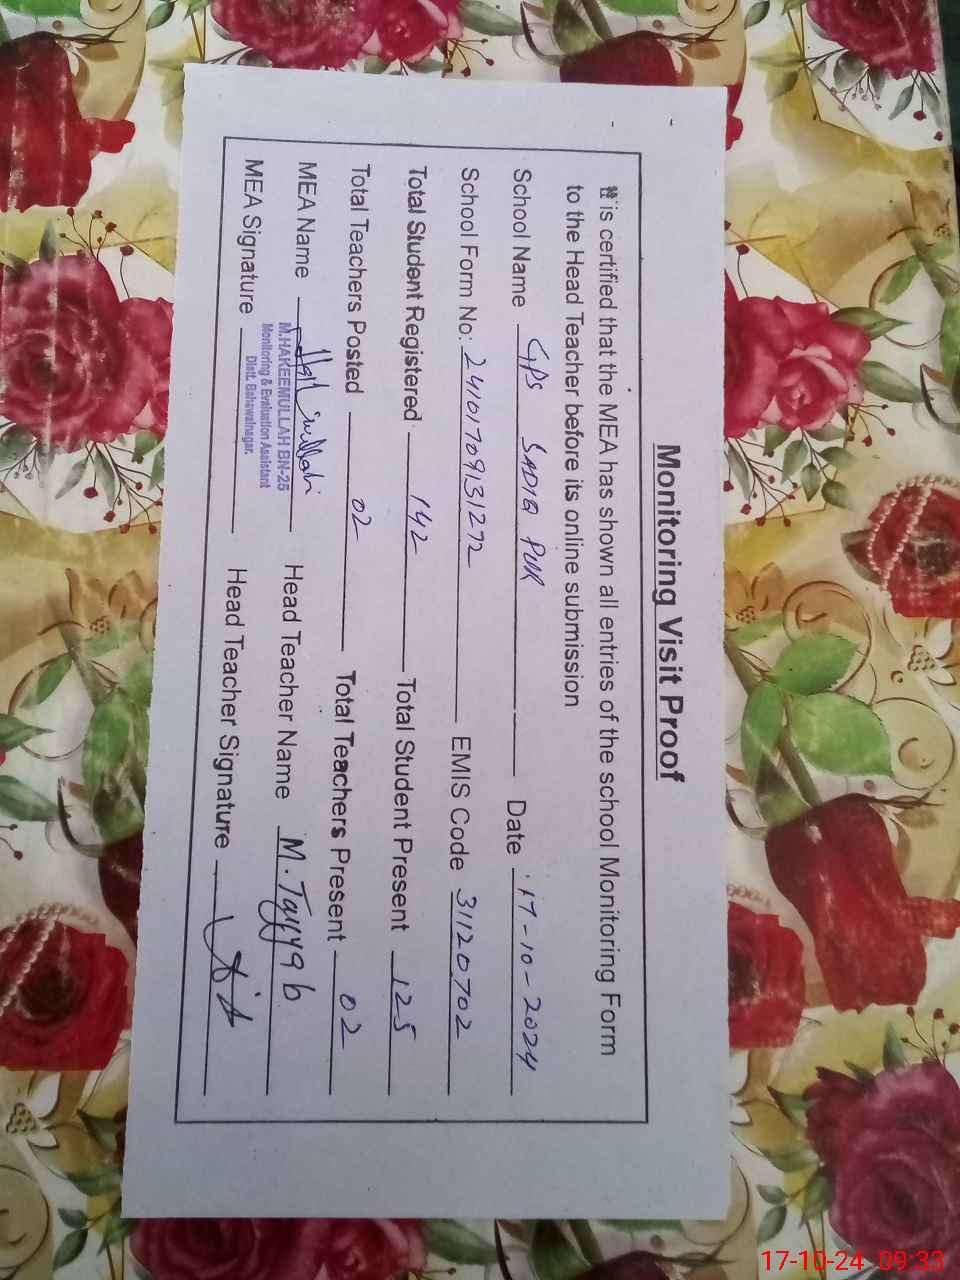 Monitoring Visit Proof
It is certified that the MEA has shown all entries of the school Monitoring Form
to the Head Teacher before its online submission
School Name GPS SADIQ PUR Date 17-10-2024
School Form No: 24101709131272 EMIS Code 31120702
Total Student Registered 142 Total Student Present 125
Total Teachers Posted 02 Total Teachers Present 02
MEA Name Head Teacher Name M. Tayyab
M.HAKEEMULLAH BN-25
Monitoring & Evaluation Assistant
Distt. Bahawalnagar.
MEA Signature Head Teacher Signature
17-10-24 09:33